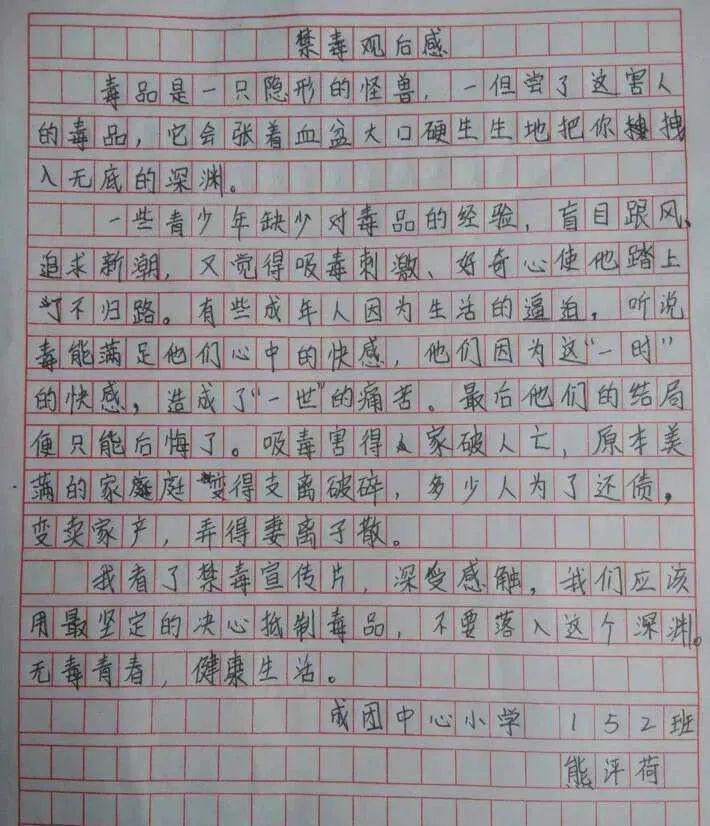 禁毒观后感
毒品是一只隐形的怪兽，一但尝了这害人
的毒品，它会张着血盆大口硬生生地把你拽
入无底的深渊。
一些青少年缺少对毒品的经验，盲目跟风、
追求新潮，又觉得吸毒刺激、好奇心使他踏上
了不归路。有些成年人因为生活的逼迫，听说
毒能满足他们心中的快感，他们因为这“一时”
的快感，造成了“一世”的痛苦。最后他们的结局
便只能后悔了。吸毒害得人家破人亡，原本美
满的家庭变得支离破碎，多少人为了还债，
变卖家产，弄得妻离子散。
我看了禁毒宣传片，深受感触，我们应该
用最坚定的决心抵制毒品，不要落入这个深渊。
无毒青春，健康生活。
成团中心小学 152班
熊评荷